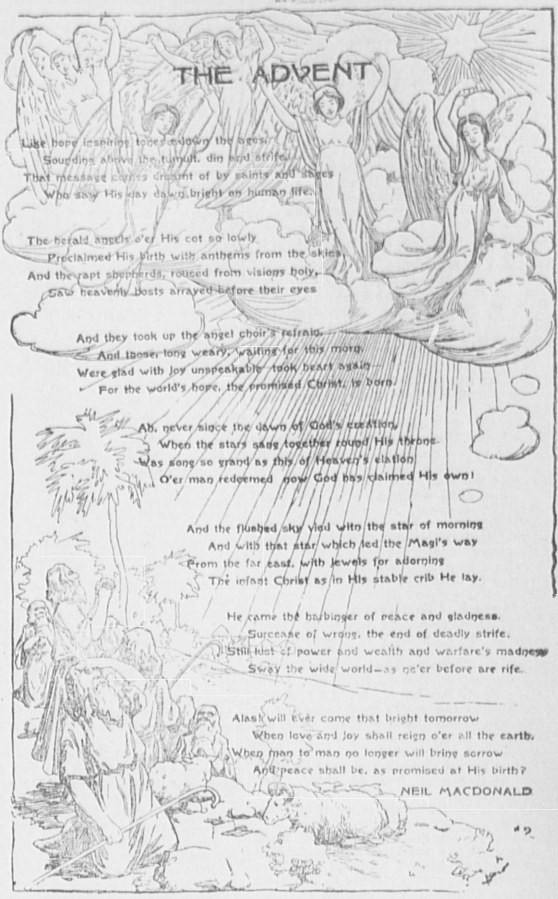 THE ADVENT
Like hope inspiring tones adown the ages,
Sounding above the tumult, din and strife,
That message comes dreamt of by saints and sages
Who saw His day dawn bright on human life.
The herald angels o'er His cot so lowly
Proclaimed His birth with anthems from the skies,
And the rapt shepherds, roused from visions holy,
Saw heavenly hosts arrayed before their eyes
And they took up the angel choir's refrain,
And those, long weary, waiting for this morn,
Were glad with joy unspeakable took heart again—
For the world's hope, the promised Christ, is born.
Ah, never since the dawn of God's creation,
When the stars sang together round His throne.
Was song so grand as this of Heaven's elation
O'er man redeemed now God has claimed His own!
And the flushed sky vied with the star of morning
And with that star which led the Magi's way
From the far east, with jewels for adorning
The infant Christ as in His stable crib He lay.
He came the harbinger of peace and gladness.
Surcease of wrong, the end of deadly strife.
Still lust of power and wealth and warfare's madness
Sway the wide world—as ne'er before are rife.
Alas! will ever come that bright tomorrow
When love and joy shall reign o'er all the earth,
When man to man no longer will bring sorrow
And peace shall be, as promised at His birth?
NEIL MACDONALD